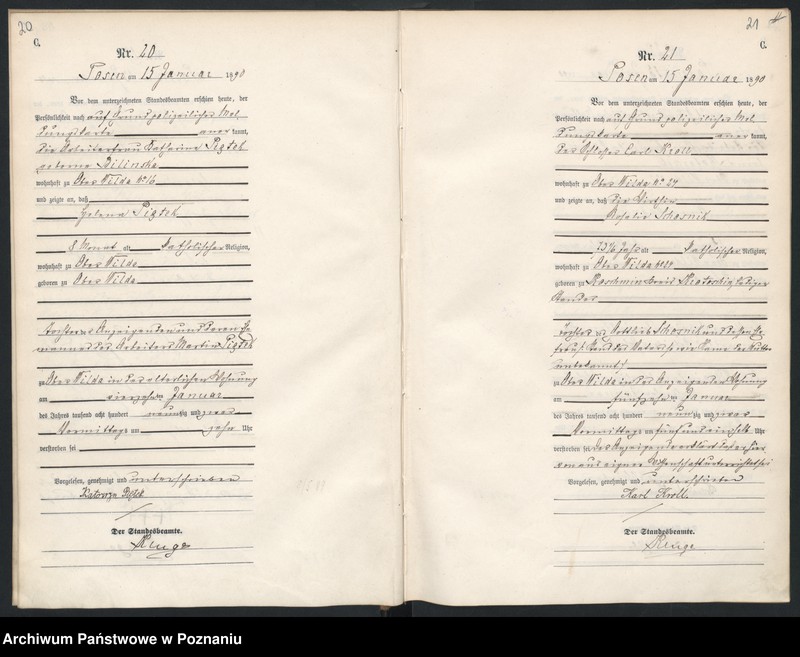 20
C.
Nr. 20
Posen am 15 Januar 1890
Vor dem unterzeichneten Standesbeamten erschien heute, der
Persönlichkeit nach auf Grund polizeilicher Mel
dungskarte anerkannt,
die Arbeiterfrau Katharina Piątek
geborne Bilinska
wohnhaft zu Ober Wilda No 16
und zeigte an, daß
Helena Piątek
8 Monat alt katholischer Religion,
wohnhaft zu Ober Wilda
geboren zu Ober Wilda
Tochter der Anzeigenden und deren Ehe
mannes des Arbeiters Martin Piątek
zu Ober Wilda in der elterlichen Wohnung
am vierzehnten Januar
des Jahres tausend acht hundert neunzig und zwar
Vormittags um zehn Uhr
verstorben sei
Vorgelesen, genehmigt und unterschrieben
Katarzyna Piątek
Der Standesbeamte.
Runge
21
C.
Nr. 21
Posen am 15 Januar 1890
Vor dem unterzeichneten Standesbeamten erschien heute, der
Persönlichkeit nach auf Grund polizeilicher Mel
dungskarte anerkannt,
der Schlosser Carl Kroll
wohnhaft zu Ober Wilda No 24
und zeigte an, daß die
Rosalie
alt katholischer Religion,
wohnhaft zu Ober Wilda
geboren zu Koschmin Kreis Krotoschin, ledigen
Standes
Tochter des Gottlieb und dessen Ehe
frau, Stand des Vaters sowie Name der Mutter
unbekannt
zu Ober Wilda in des Anzeigenden Wohnung
am fünfzehnten Januar
des Jahres tausend acht hundert neunzig und zwar
Vormittags um Uhr
verstorben sei
aus eigener Wissenschaft unterrichtet sei
Vorgelesen, genehmigt und unterschrieben
Karl Kroll
Der Standesbeamte.
Runge
Archiwum Państwowe w Poznaniu